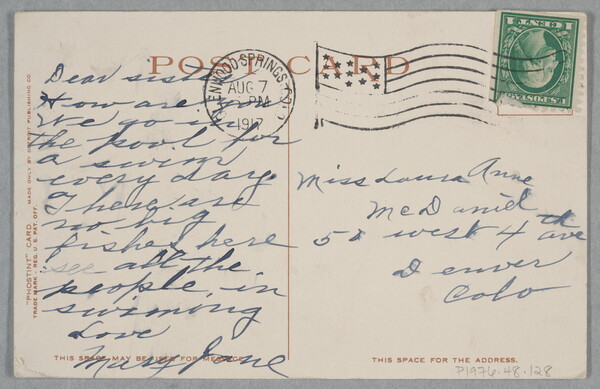 POST CARD
GLENWOOD SPRINGS, COLO.
AUG 7
PM
1917
Dear sister
How are you
We go in
the pool for
a swim
every day
There are
no big
fishes here
see all the
people in
swiming
Love
Mary Jane
Miss Laura Anne
McDaniel
51 west 4th ave
Denver
Colo
"PHOSTINT" CARD MADE ONLY BY DETROIT PUBLISHING CO.
TRADE MARK - REG. U.S. PAT. OFF.
THIS SPACE MAY BE USED FOR MESSAGE
THIS SPACE FOR THE ADDRESS.
P1976.48.128